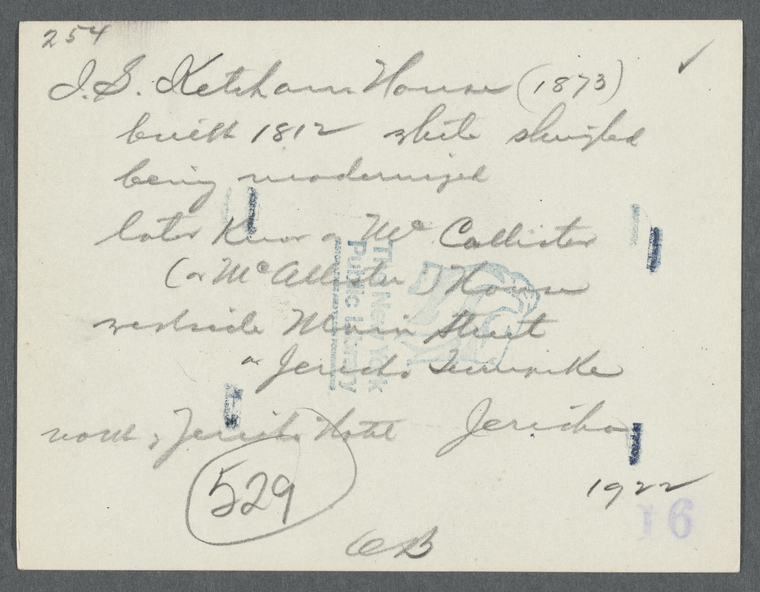 254
I. S. Ketcham House (1873) ✓
built 1812 white shingled
being modernized
later know as McCallister
(or McAllister) House
westside Main Street
or Jericho Turnpike
north of Jericho Hotel Jericho
529
1922
16
OB
The New York
Public Library